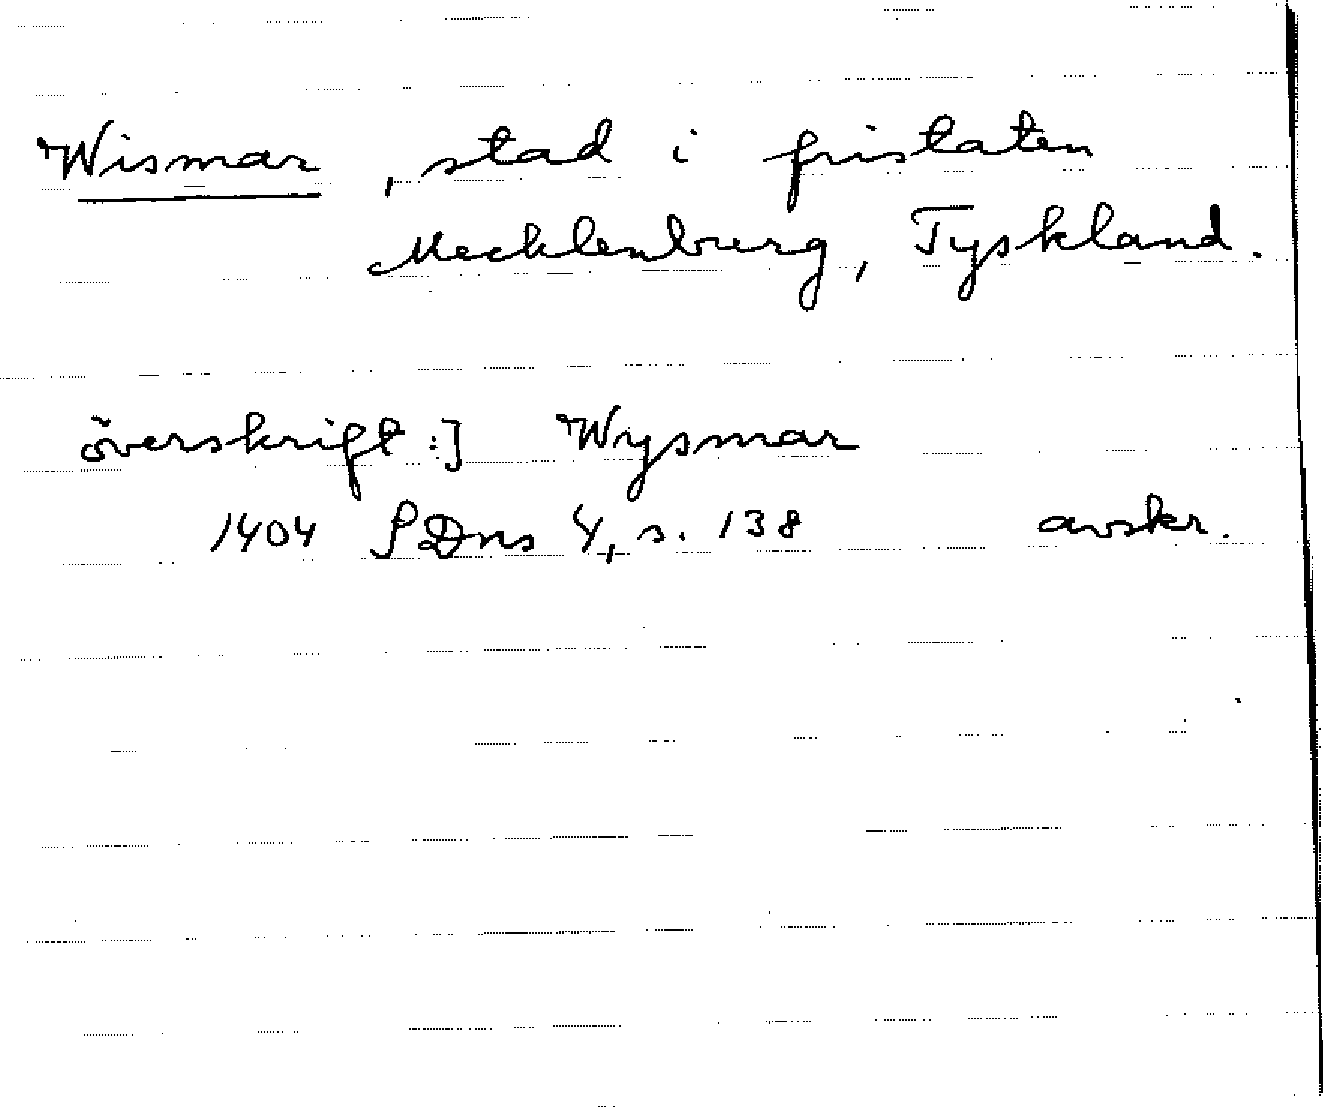 Wismar, stad i fristaten
Mecklenburg, Tyskland.
överskrift:] Wysmar
1404 SDns 4, s. 138 avskr.